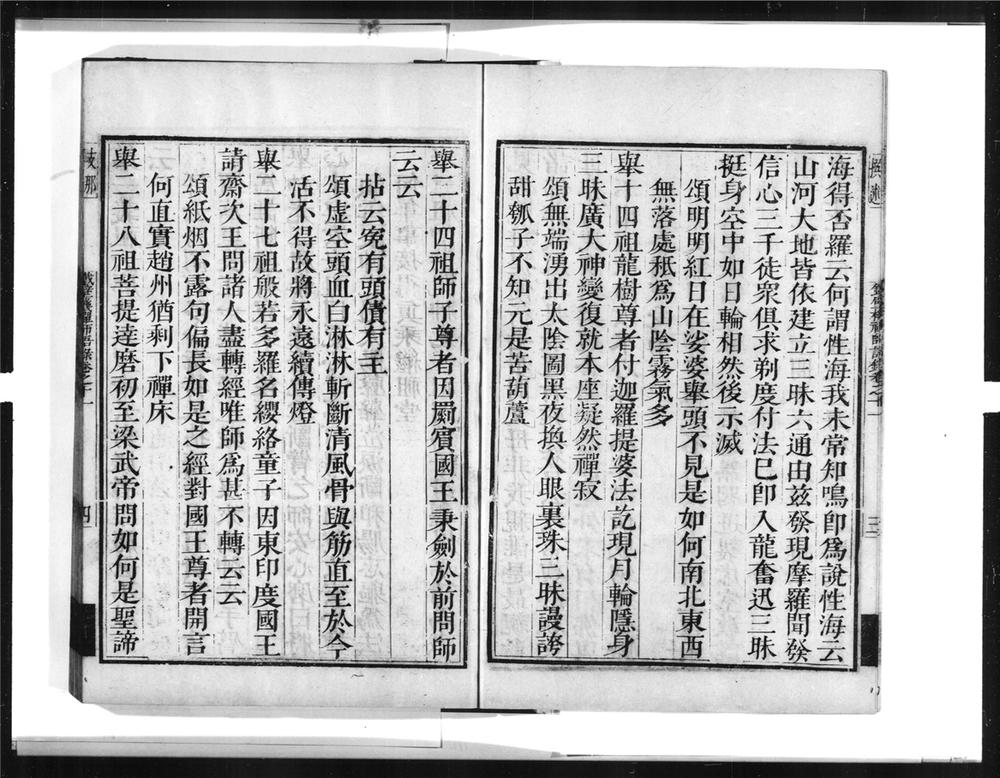 海得否羅云何謂性海我未常知鳴卽爲說性海云
山河大地皆依建立三昧六通由兹發現摩羅聞發
信心三千徒衆俱求剃度付法已卽入龍奮迅三昧
挺身空中如日輪相然後示滅
頌明明紅日在娑婆舉頭不見是如何南北東西
無落處秖爲山陰霧氣多
舉十四祖龍樹尊者付迦羅提婆法訖現月輪隱身
三昧廣大神變復就本座凝然禪寂
頌無端湧出太陰圖黑夜換人眼裏珠三昧謾誇
甜瓠子不知元是苦葫蘆
三
舉二十四祖師子尊者因罽賓國王秉劍於前問師
云云
拈云寃有頭債有主
頌虛空頭血白淋淋斬斷清風骨與筋直至於今
活不得故將永遠續傳燈
舉二十七祖般若多羅名纓絡童子因東印度國王
請齋次王問諸人盡轉經唯師爲甚不轉云云
頌紙烟不露句偏長如是之經對國王尊者開言
何直實趙州猶剩下禪床
舉二十八祖菩提達磨初至梁武帝問如何是聖諦
四